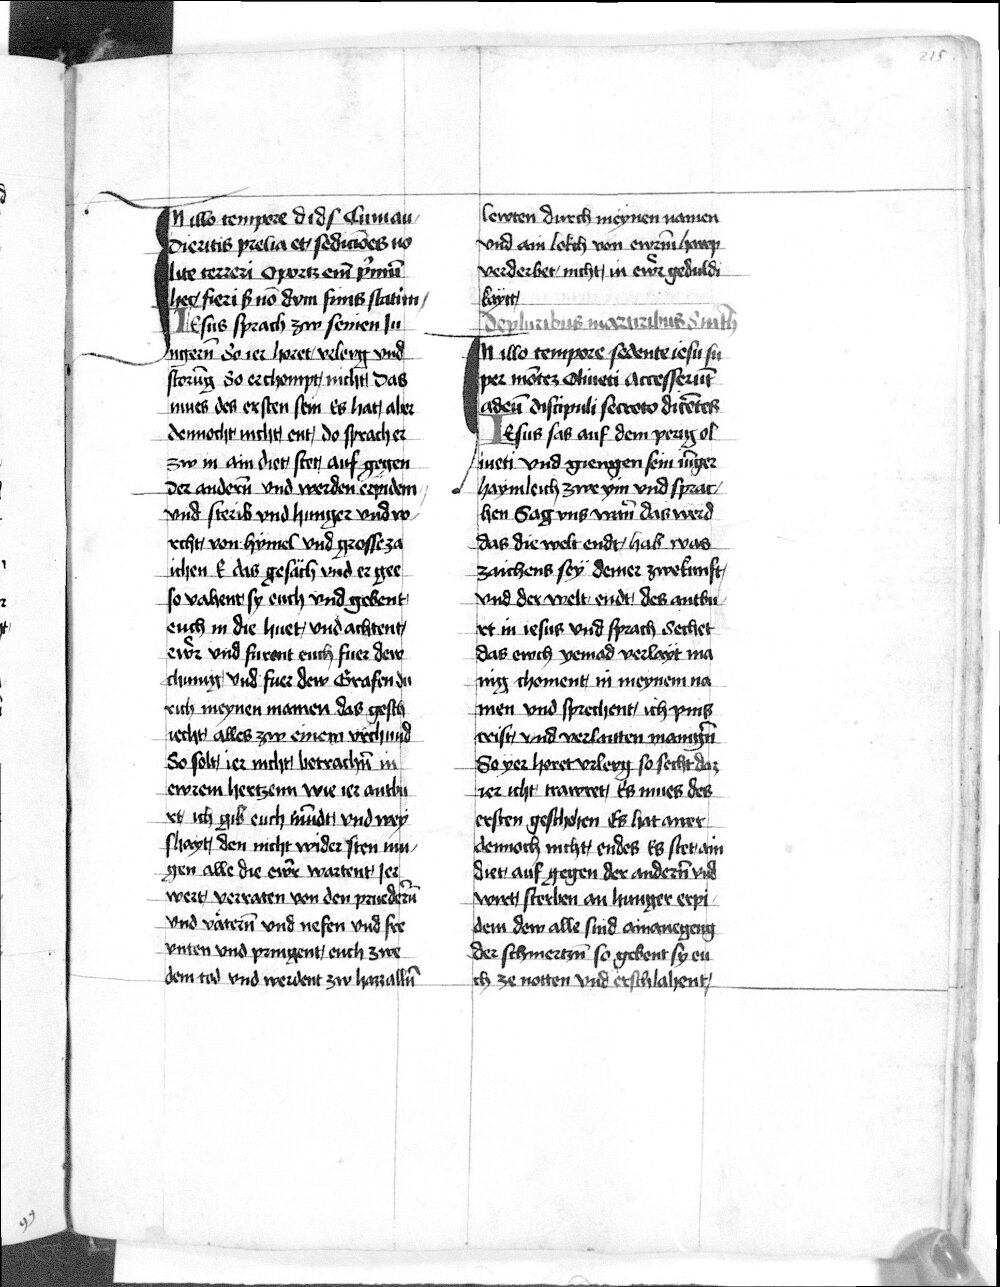 215
IN illo tempore d i d s Cum au/
dieritis prelia et sediciões no
lite terreri Oportz em̄ p̄mū
hec fieri s̄ nō dum finis statim/
IEsus sprach zw seinen Iu
ngern̄ So ier horet vrleyg vnd
storūg So erchompt nicht Das
mues des ersten sein Es hat aber
dennocht nicht ent do sprach er
zw in ain diet stet auf gegen
der andern̄ vnd werden erpidem/
vnd sterib vnd hunger vnd vo/
rcht von hymel vnd grosse za
ichen E das gesäch vnd er gee
so vahent sy euch vnd gebent
euch in die huet vnd achtent
ewr̄ vnd furent euch fuer dew
chunig vnd fuer dew Grafen du
rich meynen namen das gesch
iecht alles zw einem vrchund
So solt ier nicht betrachn̄ in
ewrem hertzenn wie ier antbu
rt ich gib euch mūndt vnd wey
shayt den nicht wider sten mu/
gen alle die ewr̄ wartent Ier
wert verraten von den pruedern̄
vnd vätern̄ vnd nefen vnd fre
vnten vnd pringent euch zwe
dem tod vnd werdent zw hazz alln̄
lewten durch meynen namen
vnd ain lokch von ewrm̄ hawp
verderbet nicht in ewr̄ geduldi
kayt
De pluribus martiribus
IN illo tempore sedente iesu su
per montez Oliueti Accesserūt
ad eū discipuli secreto dicētes
IEsus sas auf dem perig ol
iueti vnd giengen sein iūger
haymleich zwe ym vnd sprac/
hen Sag vns wan̄ das werd
das die welt endt hab was
zaichens sey deiner zwekunft/
vnd der welt endt des antbu/
rt in iesus vnd sprach Sechet
das ewch yemād verlayt ma
nig choment in meynem na
men vnd sprechent ich pins
crist vnd verlaitten manign̄
So yer horet vrleyg so secht daz
ier icht trawret Es mues des
ersten geschehen Es hat awer
dennoch nicht endes Es stet ain
diet auf gegen der andern̄ vnd
wirt sterben an hunger erpi/
dem dew alle sind ain anegeng
der schmertzn̄ so gebent sy eu
ch ze notten vnd erschlahent/
99